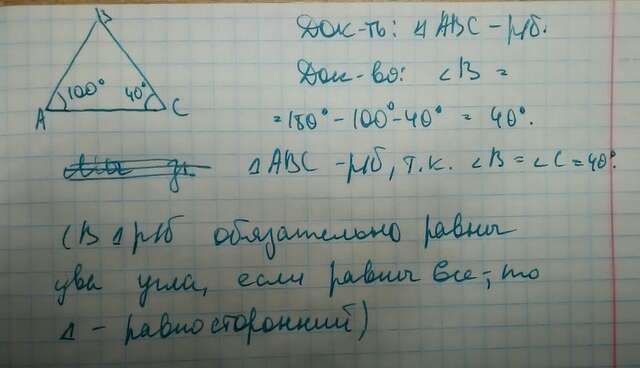 B
100°
40°
A
C
Док-ть: △ABC - р/б.
Док-во: ∠B =
= 180° - 100° - 40° = 40°.
△ABC - р/б, т.к. ∠B = ∠C = 40°.
(В △ р/б обязательно равны
два угла, если равны все-, то
△ - равносторонний)